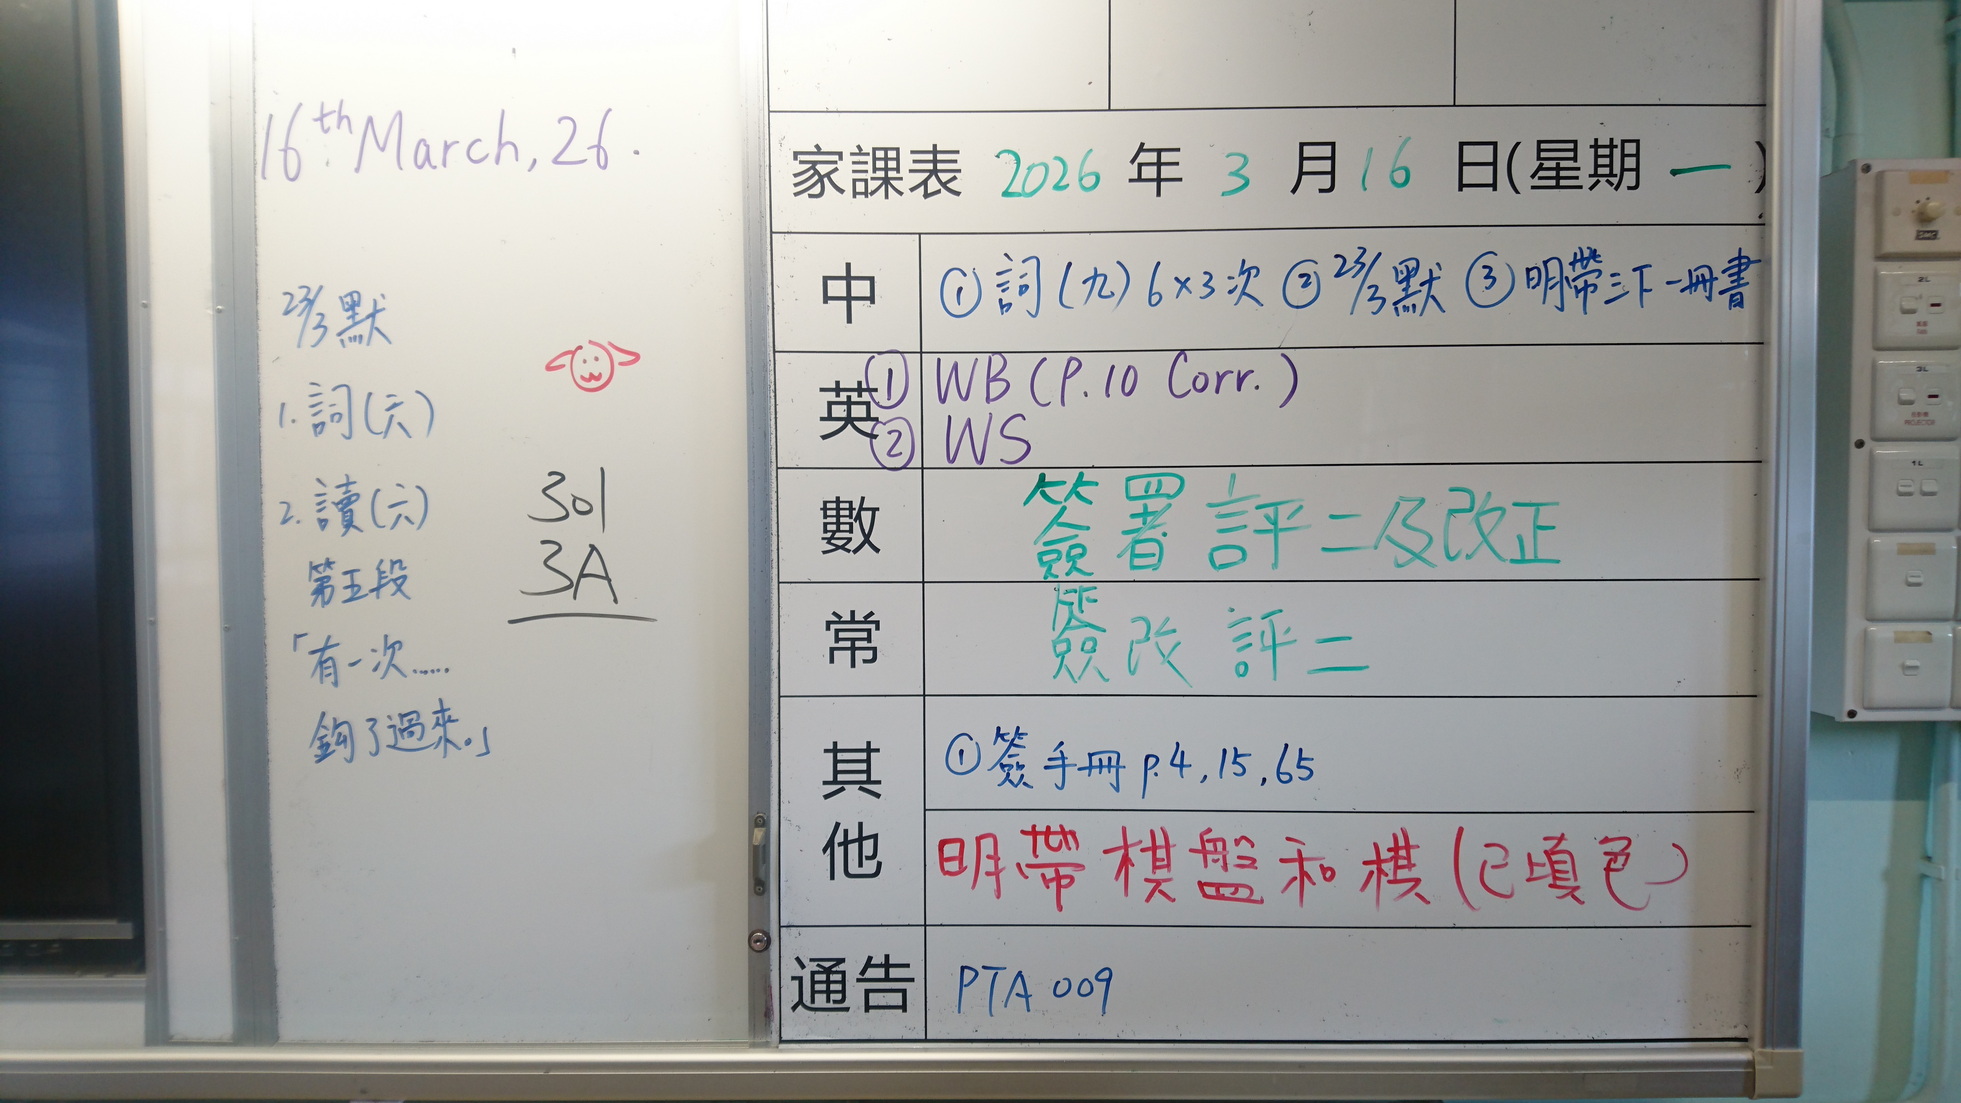 16th March, 26.
23/3默
1. 詞(六)
2. 讀(六)
第五段
「有一次……
鈎了過來。」
301
3A
家課表 2026 年 3 月 16 日(星期 一 )
中
①詞(九)6×3次 ②23/3默 ③明帶三下一冊書
英
① WB (P.10 Corr.)
② WS
數
簽署評二及改正
常
簽改評二
其他
①簽手冊 p.4, 15, 65
明帶棋盤和棋(已填色)
通告
PTA 009